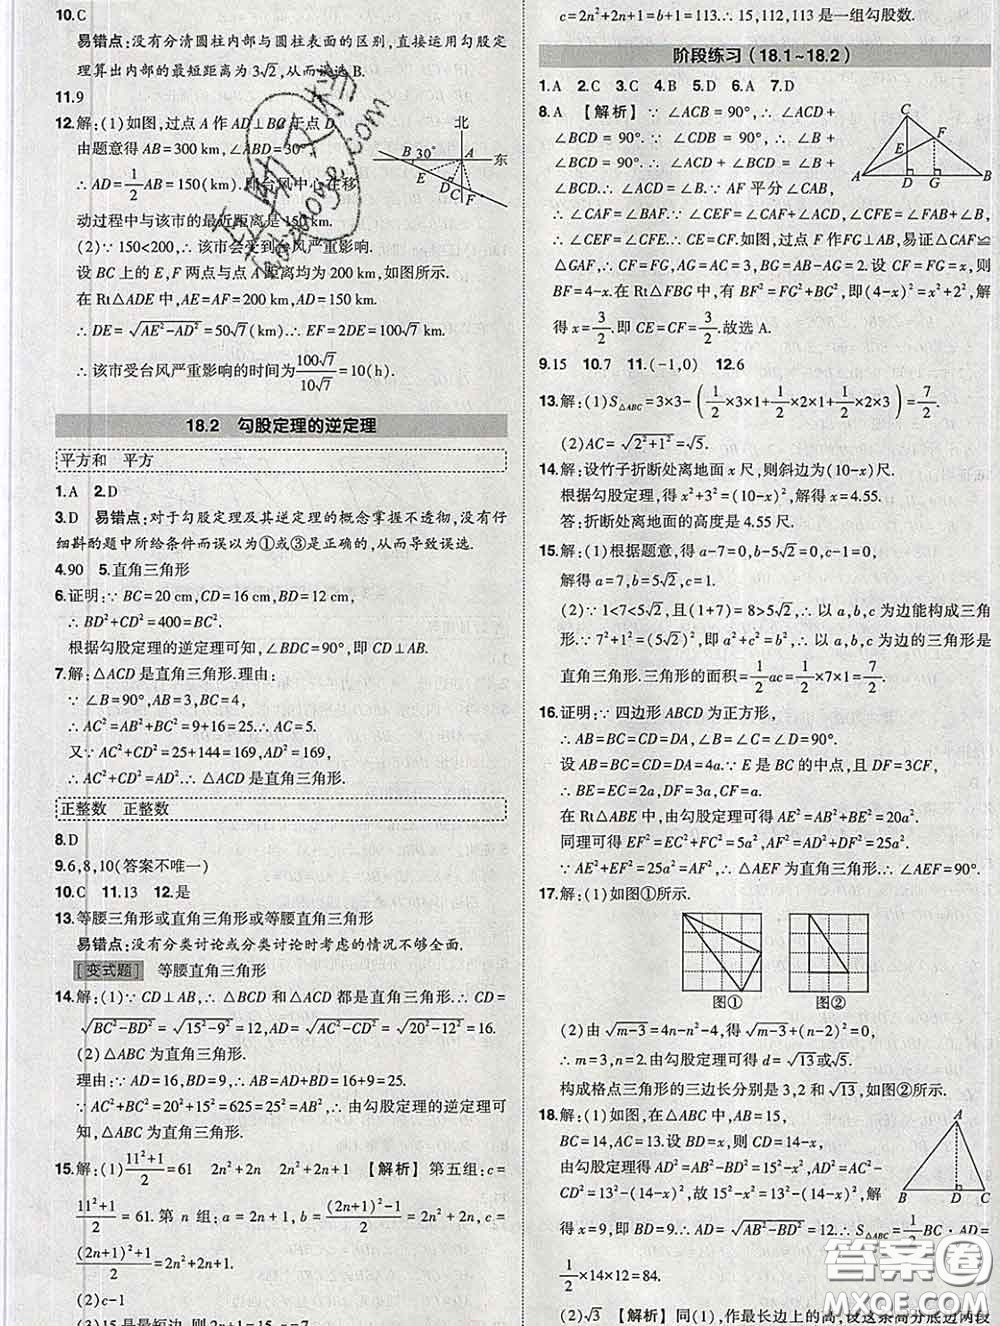 10.C
易错点:没有分清圆柱内部与圆柱表面的区别,直接运用勾股定
理算出内部的最短距离为3√2,从而误选 B.
11.9
12.解:(1)如图,过点 A 作 AD⊥BC 于点 D,
由题意得 AB=300 km,∠ABD=30°,
∴ AD=1/2 AB=150(km).即台风中心在移
动过程中与该市的最近距离是 150 km.
(2)∵ 150<200,∴ 该市会受到台风严重影响.
设 BC 上的 E,F 两点与点 A 距离均为 200 km,如图所示.
在 Rt△ADE 中,AE=AF=200 km,AD=150 km.
∴ DE=√(AE²-AD²)=50√7(km).∴ EF=2DE=100√7 km.
∴ 该市受台风严重影响的时间为 100√7/10√7=10(h).
北
东
B 30° A
E D C F
18.2 勾股定理的逆定理
平方和 平方
1.A 2.D
3.D 易错点:对于勾股定理及其逆定理的概念掌握不透彻,没有仔
细斟酌题中所给条件而误以为①或③是正确的,从而导致误选.
4.90 5.直角三角形
6.证明:∵ BC=20 cm,CD=16 cm,BD=12 cm,
∴ BD²+CD²=400=BC².
根据勾股定理的逆定理可知,∠BDC=90°,即 CD⊥AB.
7.解:△ACD 是直角三角形.理由:
∵ ∠B=90°,AB=3,BC=4,
∴ AC²=AB²+BC²=9+16=25.∴ AC=5.
又∵ AC²+CD²=25+144=169,AD²=169,
∴ AC²+CD²=AD².∴ △ACD 是直角三角形.
正整数 正整数
8.D
9.6,8,10(答案不唯一)
10.C 11.13 12.是
13.等腰三角形或直角三角形或等腰直角三角形
易错点:没有分类讨论或分类讨论时考虑的情况不够全面.
[变式题] 等腰直角三角形
14.解:(1)∵ CD⊥AB,∴ △BCD 和△ACD 都是直角三角形.∴ CD=
√(BC²-BD²)=√(15²-9²)=12,AD=√(AC²-CD²)=√(20²-12²)=16.
(2)△ABC 为直角三角形.
理由:∵ AD=16,BD=9,∴ AB=AD+BD=16+9=25.
∵ AC²+BC²=20²+15²=625=25²=AB²,∴ 由勾股定理的逆定理可
知,△ABC 为直角三角形.
15.解:(1)(11²+1)/2=61 2n²+2n 2n²+2n+1 【解析】第五组:c=
(11²+1)/2=61.第 n 组:a=2n+1,b=((2n+1)²-1)/2=2n²+2n,c=
((2n+1)²+1)/2=2n²+2n+1.
(2)c-1
c=2n²+2n+1=b+1=113.∴ 15,112,113 是一组勾股数.
阶段练习(18.1~18.2)
1.A 2.C 3.C 4.C 5.D 6.A 7.D
8.A 【解析】∵ ∠ACB=90°,∴ ∠ACD+
∠BCD=90°.∵ ∠CDB=90°,∴ ∠B+
∠BCD=90°.∴ ∠ACD=∠B.∵ AF 平分∠CAB,
∴ ∠CAF=∠BAF.∵ ∠CEF=∠CAF+∠ACD,∠CFE=∠FAB+∠B,
∴ ∠CFE=∠CEF.∴ CE=CF.如图,过点 F 作FG⊥AB,易证△CAF≌
△GAF,∴ CF=FG,AG=AC=3,BG=AB-AG=2.设 CF=FG=x,则
BF=4-x.在 Rt△FBG 中,有 BF²=FG²+BG²,即(4-x)²=x²+2²,解
得 x=3/2.即 CE=CF=3/2.故选 A.
C F E A D G B
9.15 10.7 11.(-1,0) 12.6
13.解:(1)S△ABC=3×3-(1/2×3×1+1/2×2×1+1/2×2×3)=7/2.
(2)AC=√(2²+1²)=√5.
14.解:设竹子折断处离地面 x 尺,则斜边为(10-x)尺.
根据勾股定理,得 x²+3²=(10-x)²,解得 x=4.55.
答:折断处离地面的高度是 4.55 尺.
15.解:(1)根据题意,得 a-7=0,b-5√2=0,c-1=0,
解得 a=7,b=5√2,c=1.
(2)∵ 1<7<5√2,且(1+7)=8>5√2,∴ 以 a,b,c 为边能构成三角
形.∵ 7²+1²=(5√2)²,即 a²+c²=b²,∴ 以 a,b,c 为边的三角形是
直角三角形.三角形的面积=1/2 ac=1/2×7×1=7/2.
16.证明:∵ 四边形 ABCD 为正方形,
∴ AB=BC=CD=DA,∠B=∠C=∠D=90°.
设 AB=BC=CD=DA=4a.∵ E 是 BC 的中点,且 DF=3CF,
∴ BE=EC=2a,DF=3a,CF=a.
在 Rt△ABE 中,由勾股定理可得 AE²=AB²+BE²=20a².
同理可得 EF²=EC²+FC²=5a²,AF²=AD²+DF²=25a².
∵ AE²+EF²=25a²=AF²,∴ △AEF 为直角三角形.∴ ∠AEF=90°.
17.解:(1)如图①所示.
图① 图②
(2)由√(m-3)=4n-n²-4,得√(m-3)+(n-2)²=0,
∴ m=3,n=2.由勾股定理可得 d=√13或√5.
构成格点三角形的三边长分别是 3,2 和√13,如图②所示.
18.解:(1)如图,在△ABC 中,AB=15,
BC=14,AC=13.设 BD=x,则 CD=14-x,
由勾股定理得 AD²=AB²-BD²=15²-x²,AD²
=AC²-CD²=13²-(14-x)²,故 15²-x²=13²-(14-x)²,解
得 x=9,即 BD=9.∴ AD=√(AB²-BD²)=12.∴ S△ABC=1/2 BC·AD=
1/2×14×12=84.
A B D C
(2)√3 【解析】同(1),作最长边上的高,设这条高分底边两段
答案圈
MXQE.COM